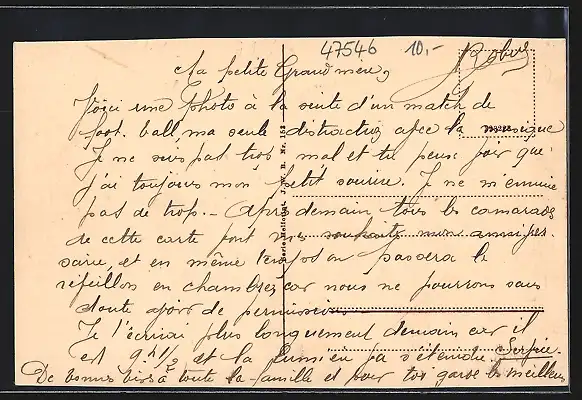 47546 10,-
Ma petite Grand'mère,
Robert
Voici une photo à la suite d'un match de
foot-ball ma seule distraction avec la musique
Je ne suis pas trop mal et tu peux voir que
j'ai toujours mon petit sourire. Je ne m'ennuie
pas de trop. - Après demain tous les camarades
de cette carte vont me souhaiter mon anniver
saire, et en même temps on passera le
réveillon en chambre, car nous ne pourrons sans
doute avoir de permissions
Je t'écrirai plus longuement demain car il
est 9h 1/2 et la lumière va s'éteindre.
De bonnes bises à toute la famille et pour toi garde les meilleurs
Serie Hellotint. J. W. B. Nr. 153